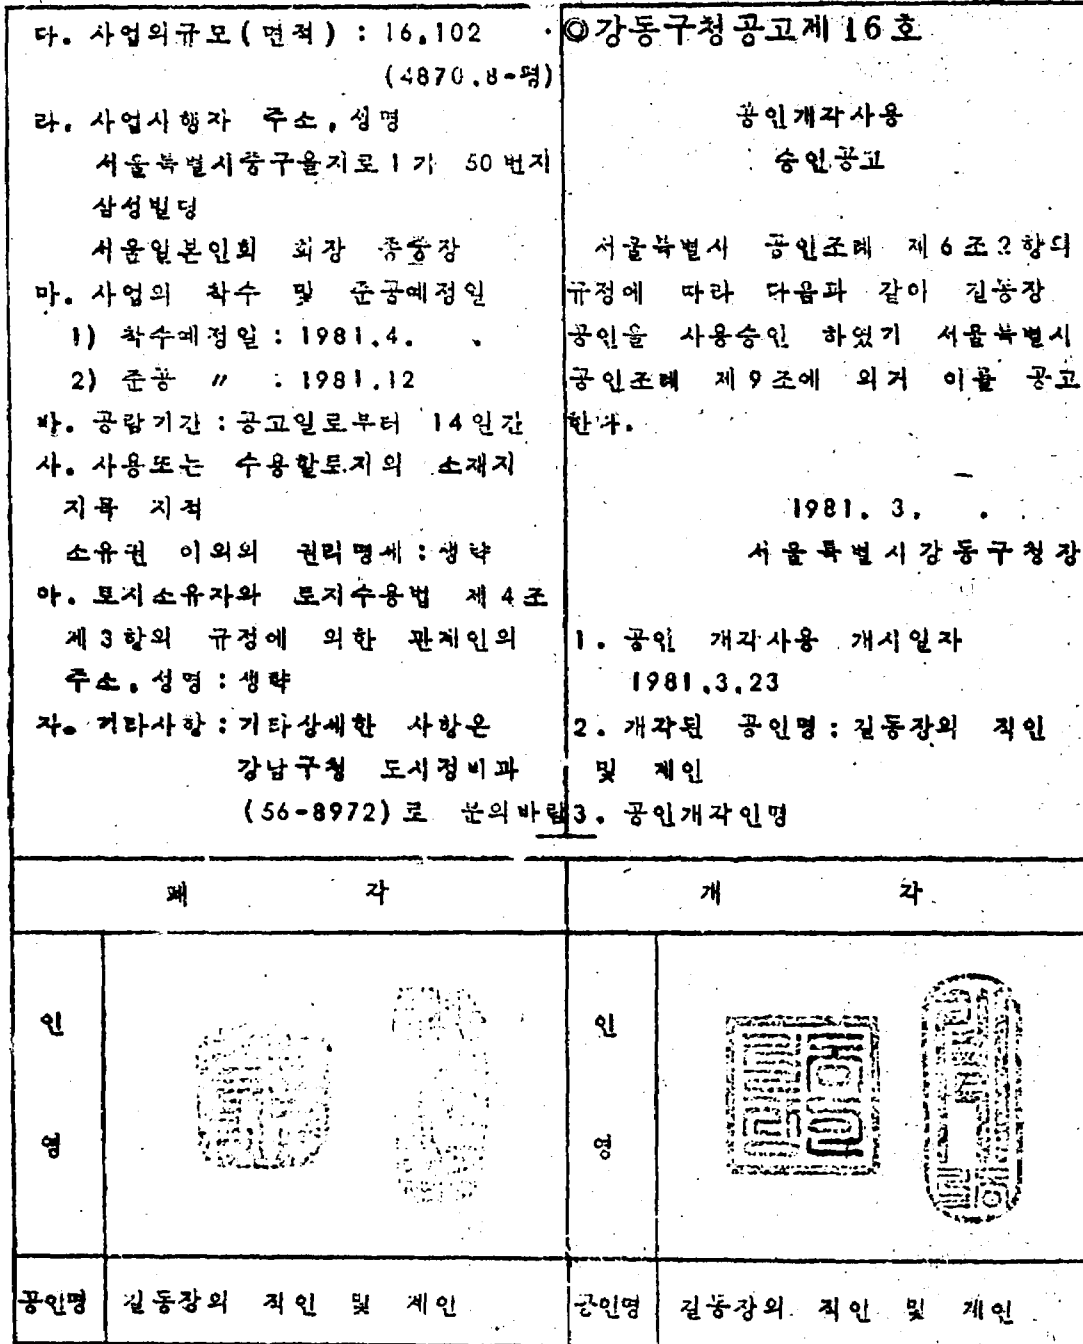 다. 사업의규모(면적) : 16.102
(4870.8-평)
라. 사업시행자 주소, 성명
서울특별시중구을지로1가 50번지
삼성빌딩
서울일본인회 회장
마. 사업의 착수 및 준공예정일
1) 착수예정일 : 1981.4. .
2) 준공 〃 : 1981.12
바. 공람기간 : 공고일로부터 14일간
사. 사용또는 수용할토지의 소재지
지목 지적
소유권 이외의 권리명세 : 생략
아. 토지소유자와 토지수용법 제4조
제3항의 규정에 의한 관계인의
주소, 성명 : 생략
자. 기타사항 : 기타상세한 사항은
강남구청 도시정비과
(56-8972)로 문의바람
◎강동구청공고제16호
공인개각사용
승인공고
서울특별시 공인조례 제6조2항의
규정에 따라 다음과 같이 길동장
공인을 사용승인 하였기 서울특별시
공인조례 제9조에 의거 이를 공고
한다.
1981. 3. .
서울특별시강동구청장
1. 공인 개각사용 개시일자
1981.3.23
2. 개각된 공인명 : 길동장의 직인
및 계인
3. 공인개각인명
폐 각 개 각
인 인
영 영
공인명 길동장의 직인 및 계인 공인명 길동장의 직인 및 계인